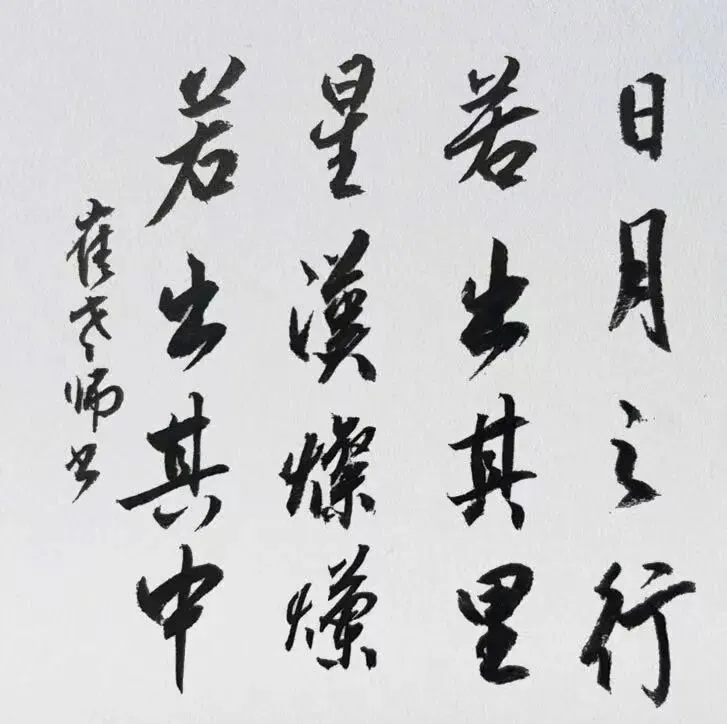 日月之行
若出其里
星漢燦爛
若出其中
崔老师书